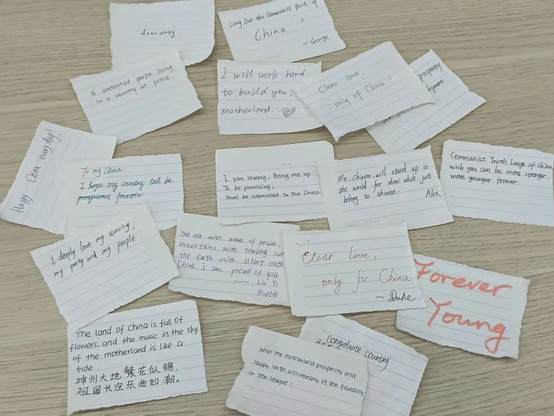 Long live the Communist Party of
China!
— George
A contented people living
in a country at peace
I will work hard
to build you,
motherland.
Clear love,
only of China!
prosperity
Happy China everyday!
To my China
I hope my country will be
prosperous forever
I yan Huang, Bring me up
To be promising,
Shall be submitted to the China
We chinese will stand up in
the world for show which just
belong to chinese.
Alex
Communist Youth League of China
wish you can be more stronger
more younger forever
I deeply love my country,
my party and my people
The sea with wave of praise,
mountains with towering
the Earth with silent oath
China I am proud of you.
—— Liu Yi
Clear love,
only for China
— Duke
Forever
Young
The land of China is full of
flowers, and the music in the sky
of the motherland is like a
tide.
神州大地繁花似锦,
祖国长空乐曲如潮。
Congratulate Country
Wish the motherland prosperity and
anniversary of the founding
of the League!